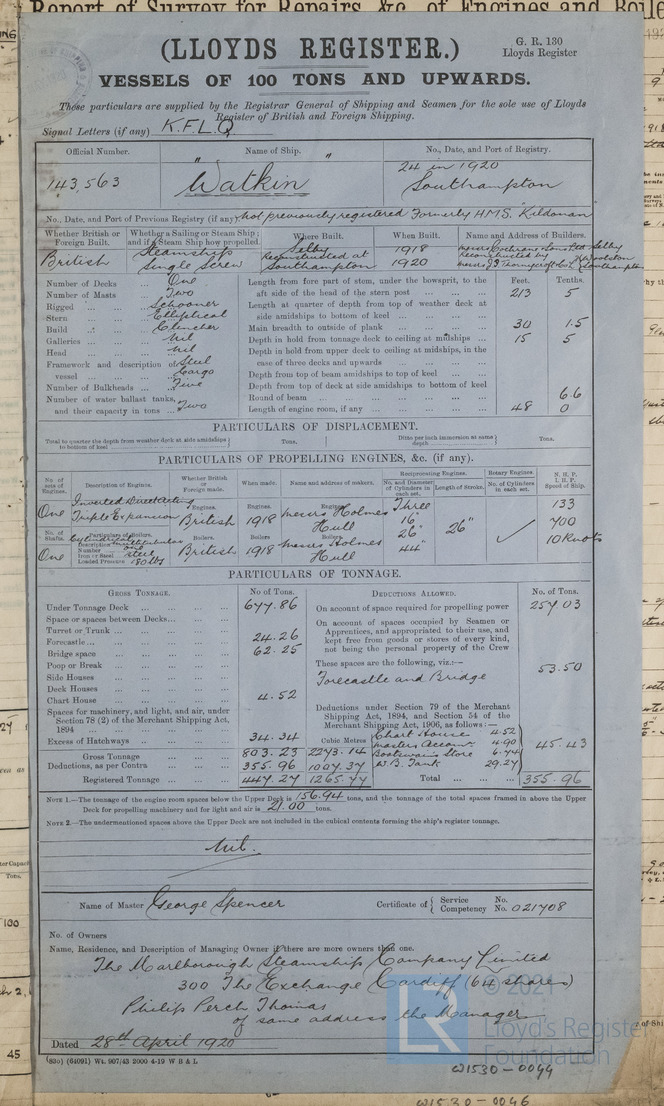 Report of Survey for Repairs, &c., of Engines and Boile
(LLOYDS REGISTER.)
G. R. 130
Lloyds Register
VESSELS OF 100 TONS AND UPWARDS.
These particulars are supplied by the Registrar General of Shipping and Seamen for the sole use of Lloyds
Register of British and Foreign Shipping.
Signal Letters (if any) K.F.L.Q
Official Number. Name of Ship. No., Date, and Port of Registry.
143,563 "Watkin" 24 in 1920
Southampton
No., Date, and Port of Previous Registry (if any) Not previously registered Formerly H.M.S. "Kildonan
Whether British or Foreign Built. Whether a Sailing or Steam Ship; and if a Steam Ship how propelled. Where Built. When Built. Name and Address of Builders.
British Steamship Single Screw
Selby 1918 Messrs Cochrane & Sons Ltd Selby
Reconstructed at Southampton 1920 Reconstructed by Messrs J I Thornycroft & Co Ld Woolston Southampton
Number of Decks One
Number of Masts Two
Rigged Schooner
Stern Elliptical
Build Clincher
Galleries Nil
Head Nil
Framework and description of vessel Steel Cargo
Number of Bulkheads Five
Number of water ballast tanks, and their capacity in tons Two
Feet. Tenths.
Length from fore part of stem, under the bowsprit, to the aft side of the head of the stern post 213 5
Length at quarter of depth from top of weather deck at side amidships to bottom of keel
Main breadth to outside of plank 30 1.5
Depth in hold from tonnage deck to ceiling at midships 15 5
Depth in hold from upper deck to ceiling at midships, in the case of three decks and upwards
Depth from top of beam amidships to top of keel
Depth from top of deck at side amidships to bottom of keel
Round of beam 6.6
Length of engine room, if any 48 0
PARTICULARS OF DISPLACEMENT.
Total to quarter the depth from weather deck at side amidships to bottom of keel Tons. Ditto per inch immersion at same depth Tons.
PARTICULARS OF PROPELLING ENGINES, &c. (if any).
No. of sets of Engines. Description of Engines. Whether British or Foreign made. When made. Name and address of makers. Reciprocating Engines. Rotary Engines. N. H. P. I. H. P. Speed of Ship.
No. and Diameter of Cylinders in each set. Length of Stroke. No. of Cylinders in each set.
One Inverted Direct Acting Triple Expansion Engines. British Engines. 1918 Engines. Messrs Holmes Hull Three 16" 26" 44" 26" 133
700
10 Knots
No. of Shafts. Particulars of Boilers. Boilers. Boilers Boilers
One Description Cylindrical Multitubular
Number one
Iron or Steel Steel
Loaded Pressure 180 lbs
British 1918 Messrs Holmes Hull
PARTICULARS OF TONNAGE.
GROSS TONNAGE. No of Tons. DEDUCTIONS ALLOWED. No. of Tons.
Under Tonnage Deck 677.86
Space or spaces between Decks
Turret or Trunk
Forecastle 24.26
Bridge space 62.25
Poop or Break
Side Houses
Deck Houses
Chart House 4.52
Spaces for machinery, and light, and air, under Section 78 (2) of the Merchant Shipping Act, 1894
Excess of Hatchways 34.34
Cubic Metres
Gross Tonnage 803.23 2273.14
Deductions, as per Contra 355.96 1007.37
Registered Tonnage 447.27 1265.77
On account of space required for propelling power 257.03
On account of spaces occupied by Seamen or Apprentices, and appropriated to their use, and kept free from goods or stores of every kind, not being the personal property of the Crew
These spaces are the following, viz.:—
Forecastle and Bridge 53.50
Deductions under Section 79 of the Merchant Shipping Act, 1894, and Section 54 of the Merchant Shipping Act, 1906, as follows:—
Chart House 4.52
Masters Accom. 4.90
Boatswains Store 6.74
W.B. Tank 29.27
45.43
Total 355.96
NOTE 1.—The tonnage of the engine room spaces below the Upper Deck is 156.94 tons, and the tonnage of the total spaces framed in above the Upper
Deck for propelling machinery and for light and air is 21.00 tons.
NOTE 2.—The undermentioned spaces above the Upper Deck are not included in the cubical contents forming the ship's register tonnage.
Nil.
Name of Master George Spencer Certificate of Service No. Competency No. 021708
No. of Owners
Name, Residence, and Description of Managing Owner if there are more owners than one.
The Marlborough Steamship Company Limited
300 The Exchange Cardiff (64 shares)
Philip Perch Thomas
of same address the Manager
Dated 28th April 1920
(830) (64091) Wt. 907/43 2000 4-19 W B & L
LR
© 2021
Lloyd's Register
Foundation
W1530-0044
W1530-0046
100
45